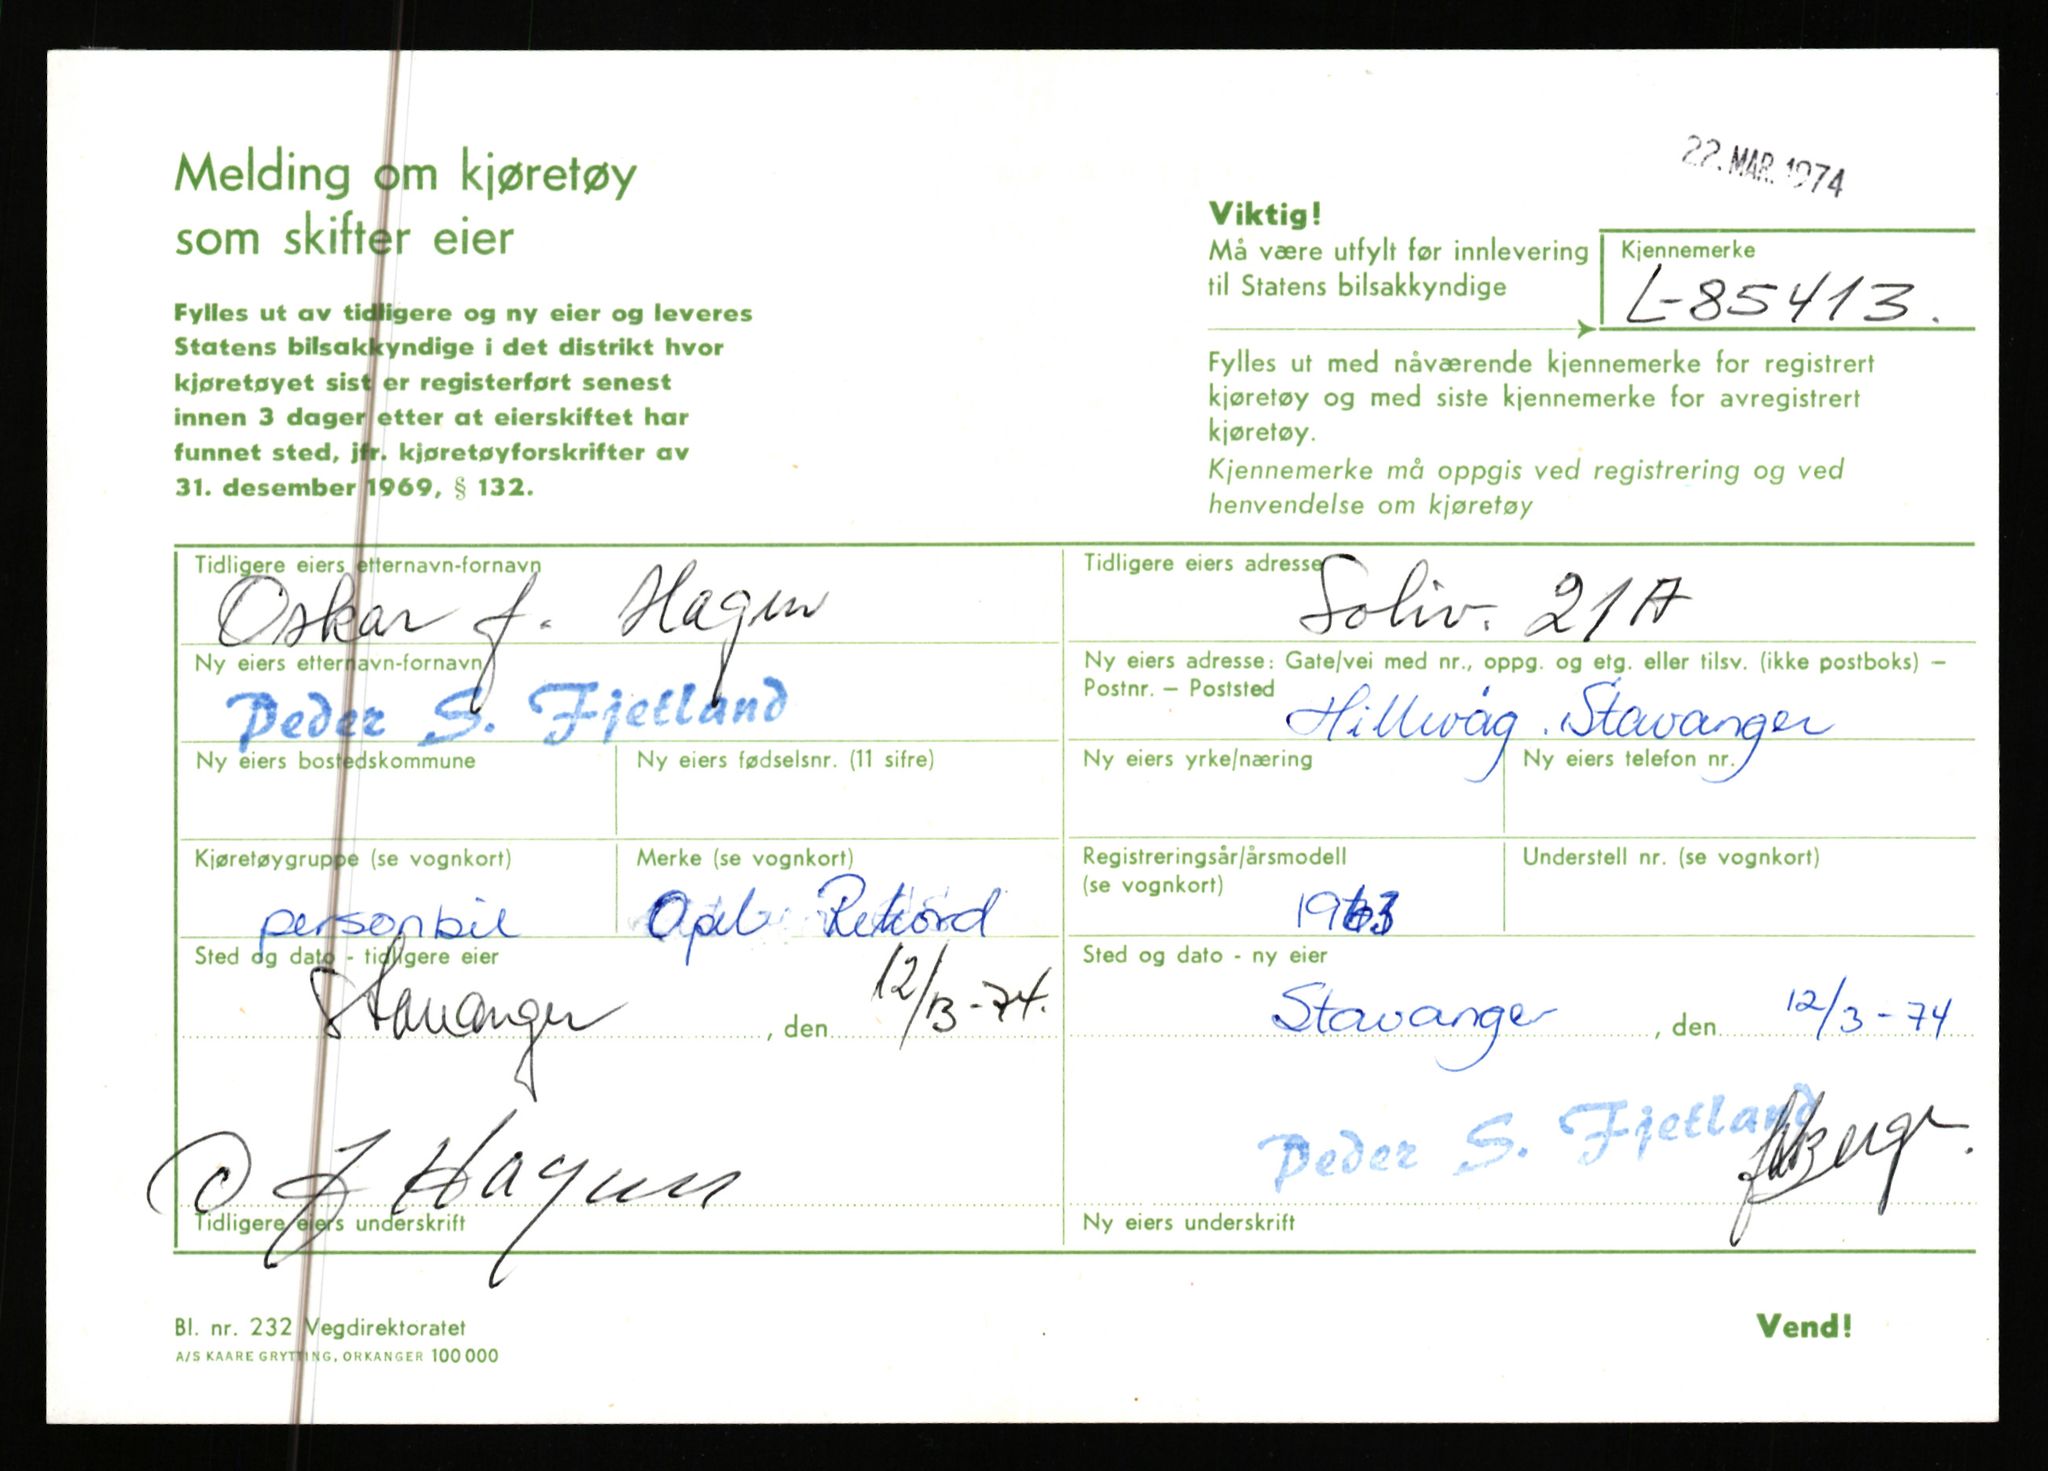 Melding om kjøretøy
som skifter eier
Fylles ut av tidligere og ny eier og leveres
Statens bilsakkyndige i det distrikt hvor
kjøretøyet sist er registerført senest
innen 3 dager etter at eierskiftet har
funnet sted, jfr. kjøretøyforskrifter av
31. desember 1969, § 132.
22. MAR. 1974
Viktig!
Må være utfylt før innlevering
til Statens bilsakkyndige
Kjennemerke
L-85413.
Fylles ut med nåværende kjennemerke for registrert
kjøretøy og med siste kjennemerke for avregistrert
kjøretøy.
Kjennemerke må oppgis ved registrering og ved
henvendelse om kjøretøy
Tidligere eiers etternavn-fornavn
Oskar J. Hagen
Tidligere eiers adresse
Soliv. 21A
Ny eiers etternavn-fornavn
Peder S. Fjetland
Ny eiers adresse: Gate/vei med nr., oppg. og etg. eller tilsv. (ikke postboks) –
Postnr. – Poststed
Hillevåg. Stavanger
Ny eiers bostedskommune
Ny eiers fødselsnr. (11 sifre)
Ny eiers yrke/næring
Ny eiers telefon nr.
Kjøretøygruppe (se vognkort)
personbil
Merke (se vognkort)
Opel Rekord
Registreringsår/årsmodell
(se vognkort)
1963
Understell nr. (se vognkort)
Sted og dato - tidligere eier
Stavanger, den 12/3-74.
Sted og dato - ny eier
Stavanger, den 12/3-74
O J Hagen
Tidligere eiers underskrift
Peder S. Fjetland
Ny eiers underskrift
Bl. nr. 232 Vegdirektoratet
A/S KAARE GRYTTING, ORKANGER 100 000
Vend!